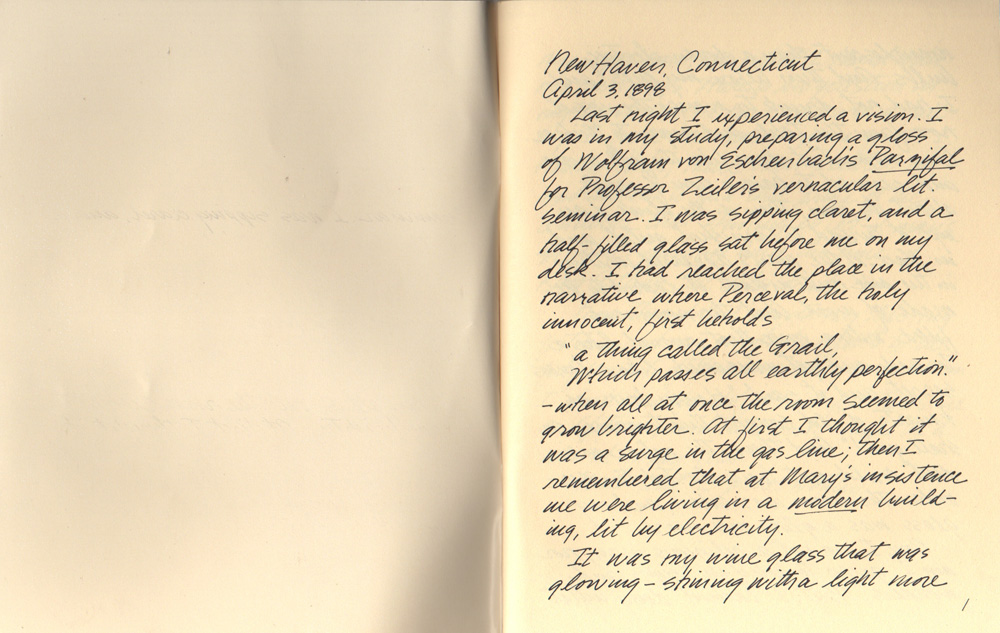 New Haven, Connecticut
April 3, 1898
Last night I experienced a vision. I
was in my study, preparing a gloss
of Wolfram von Eschenbach's Parzifal
for Professor Zeiler's vernacular lit.
seminar. I was sipping claret, and a
half-filled glass sat before me on my
desk. I had reached the place in the
narrative where Perceval, the holy
innocent, first beholds
"a thing called the Grail,
Which passes all earthly perfection."
-when all at once the room seemed to
grow brighter. At first I thought it
was a surge in the gas line; then I
remembered that at Mary's insistence
we were living in a modern build-
ing, lit by electricity.
It was my wine glass that was
glowing - shining with a light more
1